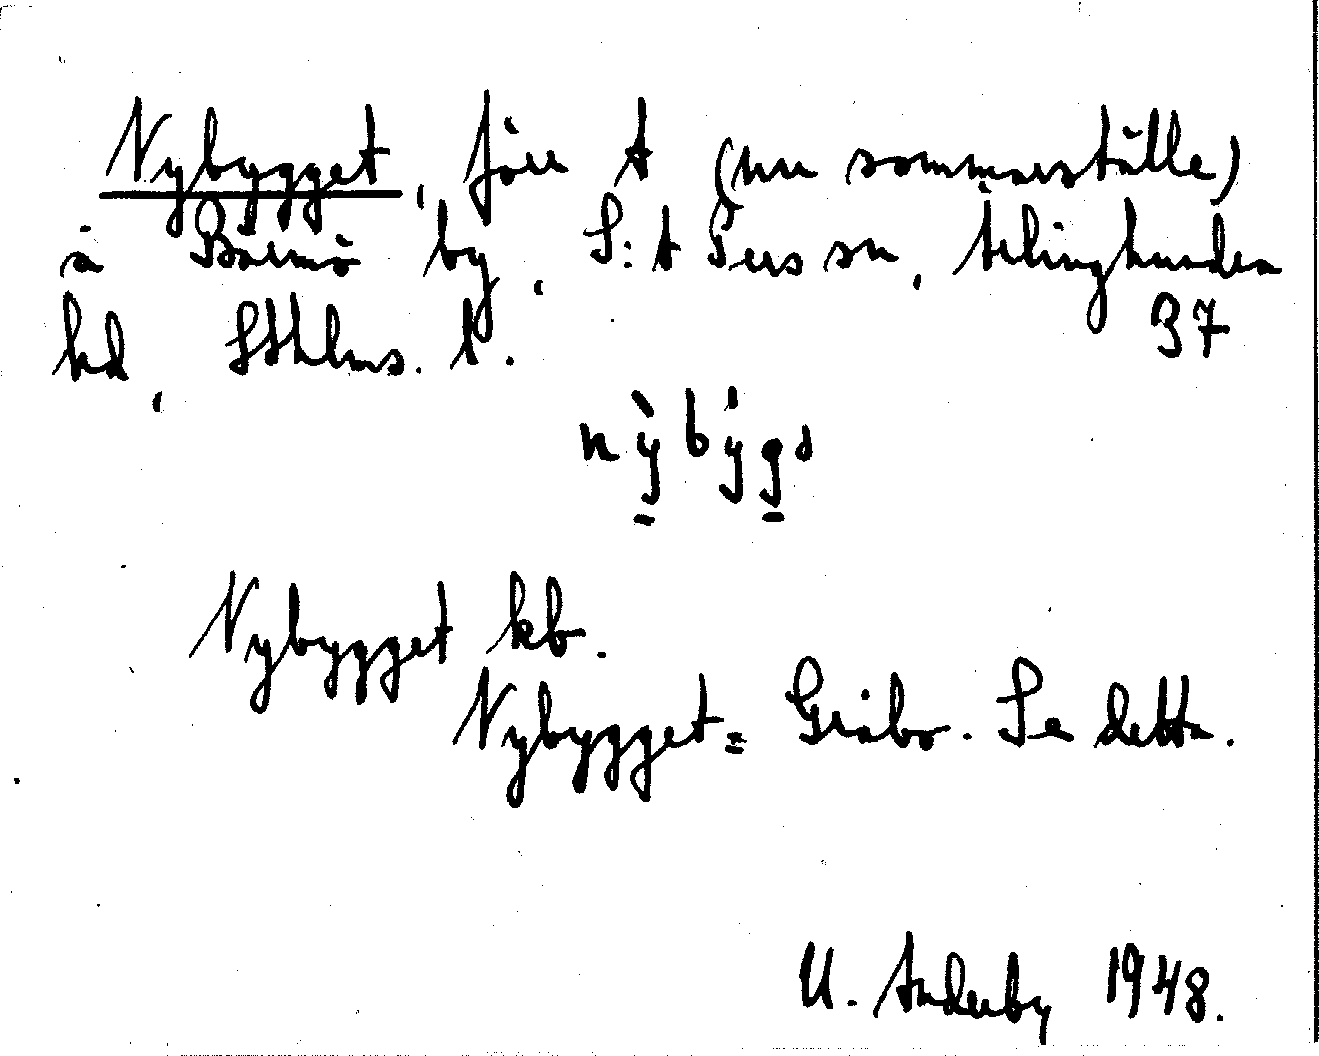 Nybygget, förr t (nu sommarställe)
å Bärmö by, S:t Pers sn, Ärlinghundra
hd, Sthlms. l. 37
nỳbýgə
Nybygget kb.
Nybygget = Gråbo. Se detta.
U. Anderby 1948.